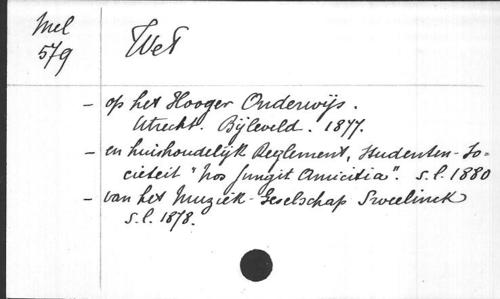 Mel
579
Wet
- op het Hooger Onderwijs.
Utrecht. Bijleveld. 1877.
- en huishoudelijk Reglement, Studenten-So-
cieteit "Nos Jungit Amicitia". s.l. 1880
- van het Muziek-Geselschap Sweelinck
s.l. 1878.